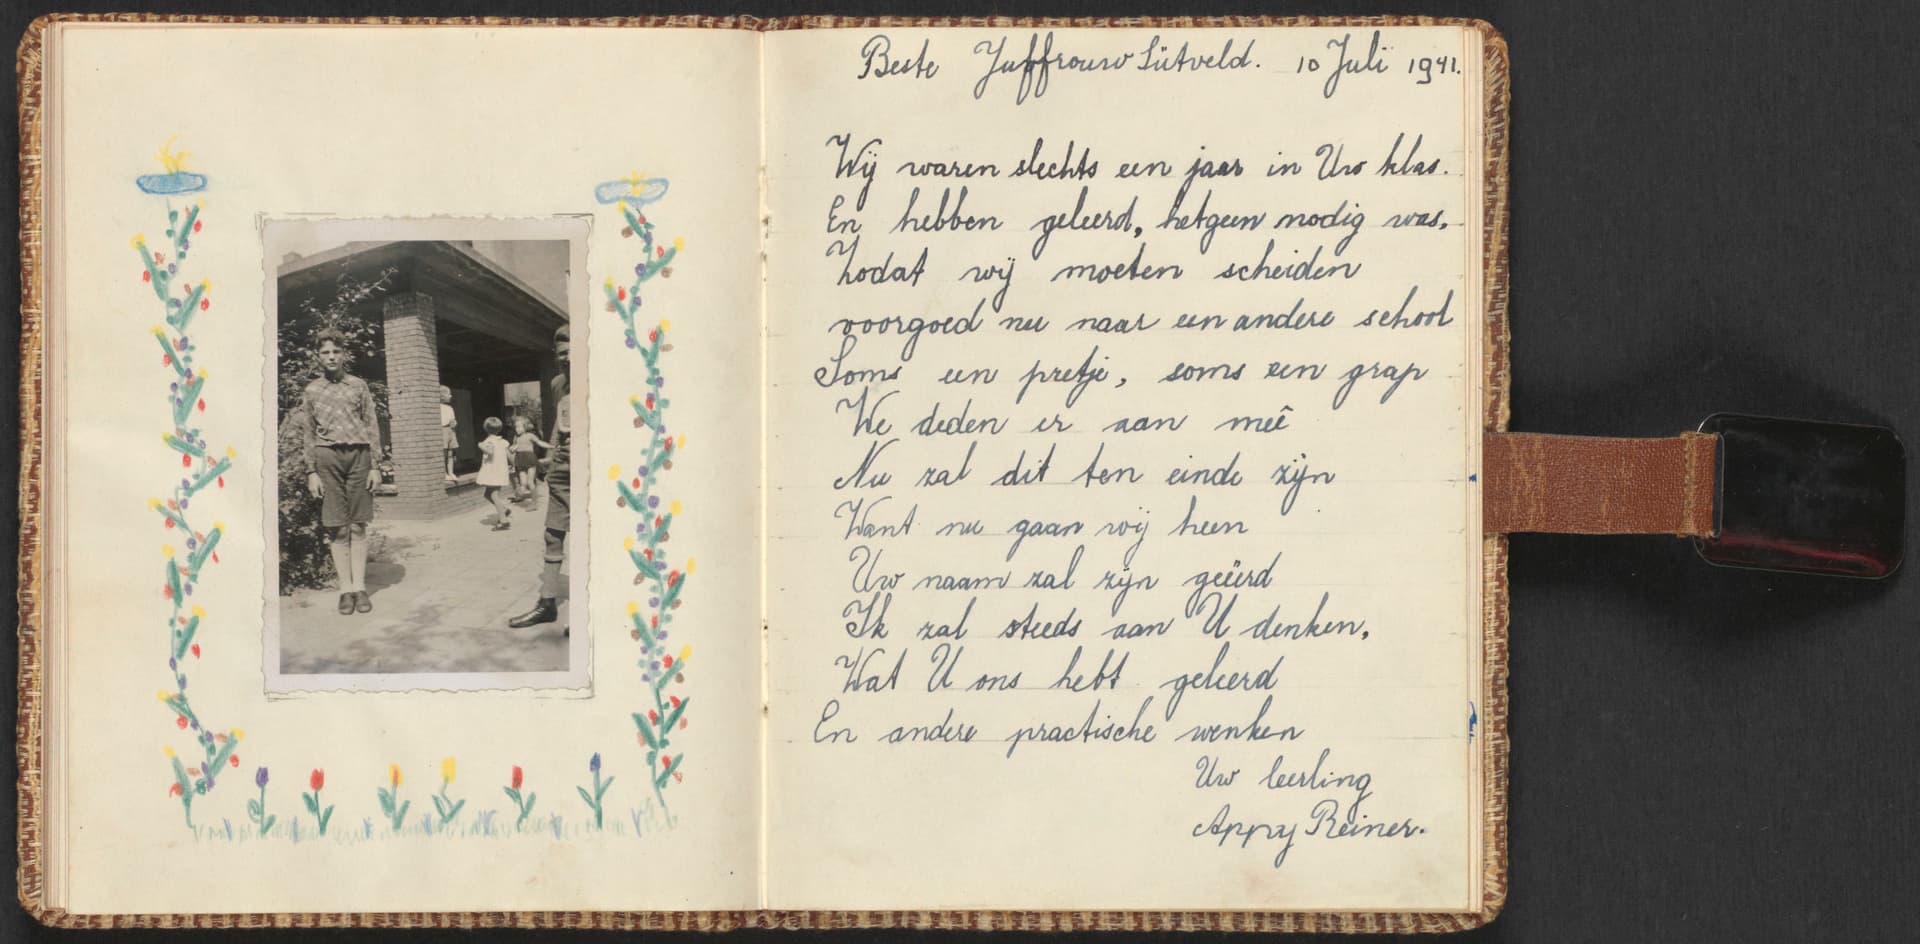 Beste Juffrouw Sütveld. 10 Juli 1941.
Wij waren slechts een jaar in Uw klas.
En hebben geleerd, hetgeen nodig was.
Zodat wij moeten scheiden
voorgoed nu naar een andere school
Soms een pretje, soms een grap
We deden er aan meê
Nu zal dit ten einde zijn
Want nu gaan wij heen
Uw naam zal zijn geëerd
Ik zal steeds aan U denken,
Wat U ons hebt geleerd
En andere practische wenken
Uw leerling
Appy Reiner.